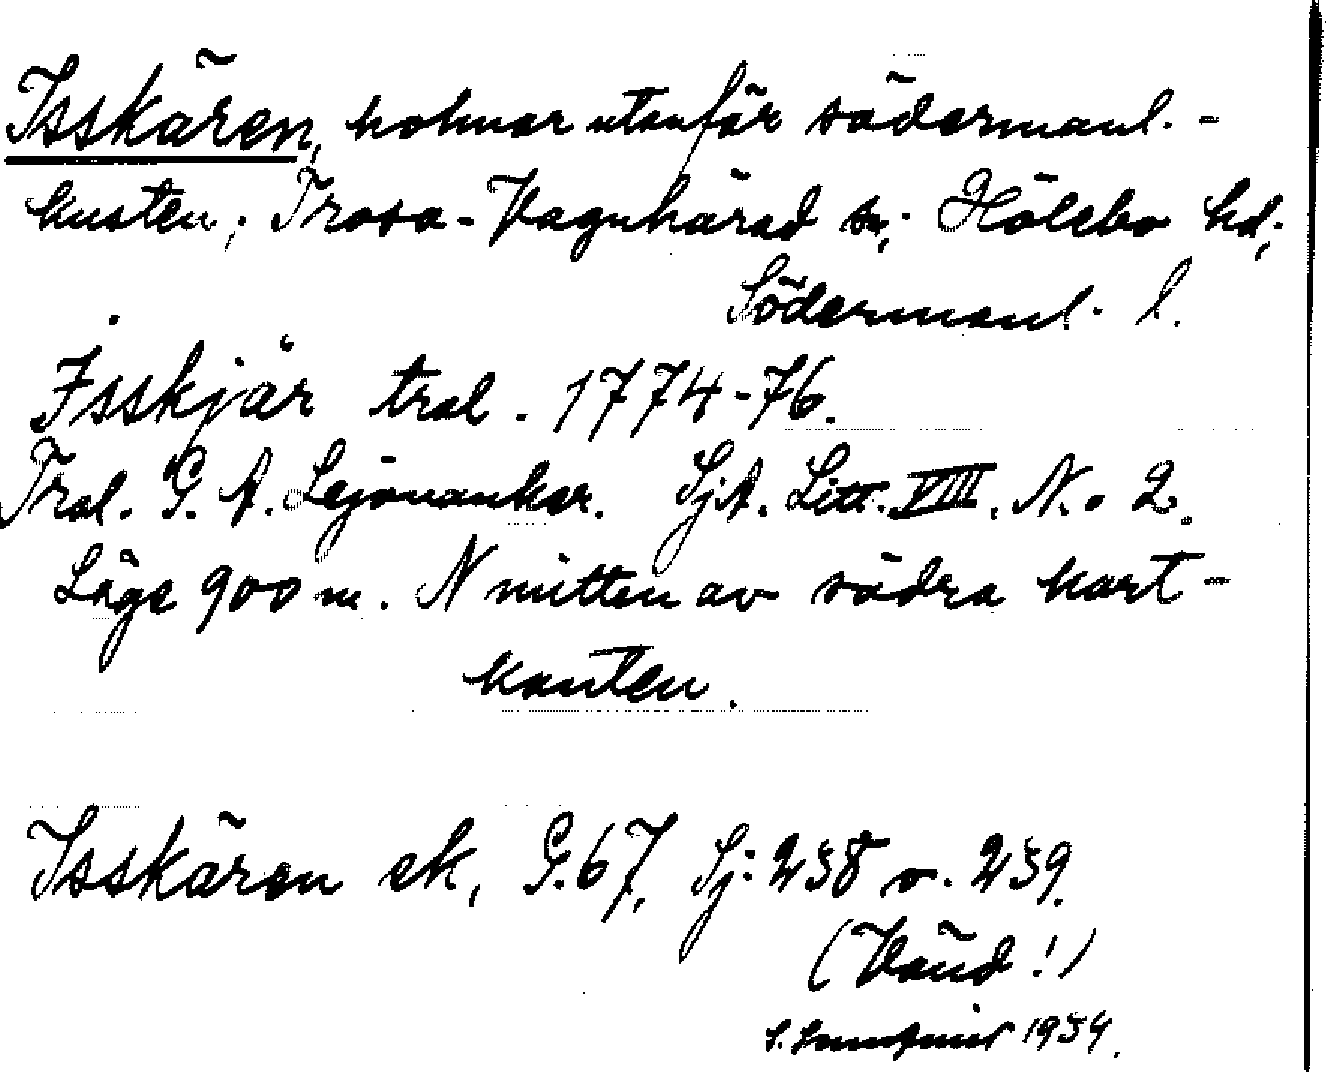 Isskären, holmar utanför södermanl.-
kusten; Trosa-Vagnhärad sn; Hölebo hd;
Södermanl. l.
Isskjär tral. 1774-76.
Tral. G. A. Lejonankar. SjA. Litt. VIII. N.o 2.
Läge 900 m. N mitten av södra kart-
kanten.
Isskären ek, G.67, Sj: 238 o. 239.
(Vänd!)
S. 1934.